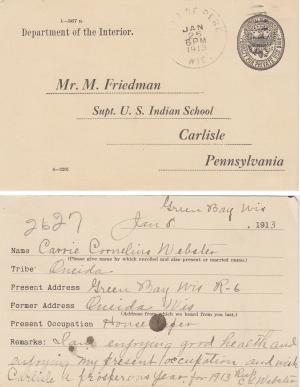 1-367 a
Department of the Interior.
DE PERE
JAN
25
6PM
1913
WIS.
Mr. M. Friedman
Supt. U. S. Indian School
Carlisle
Pennsylvania
Green Bay Wis
2627
Jan 8, 1913
Name Carrie Cornelius Webster
(Please give name by which enrolled and also present or married name.)
Tribe Oneida
Present Address Green Bay Wis R-6
Former Address Oneida Wis
(Address from which we heard from you last.)
Present Occupation Housekeeper
Remarks: I am enjoying good health and
enjoying my present occupation and wish
Carlisle a prosperous year for 1913
C. C. Webster